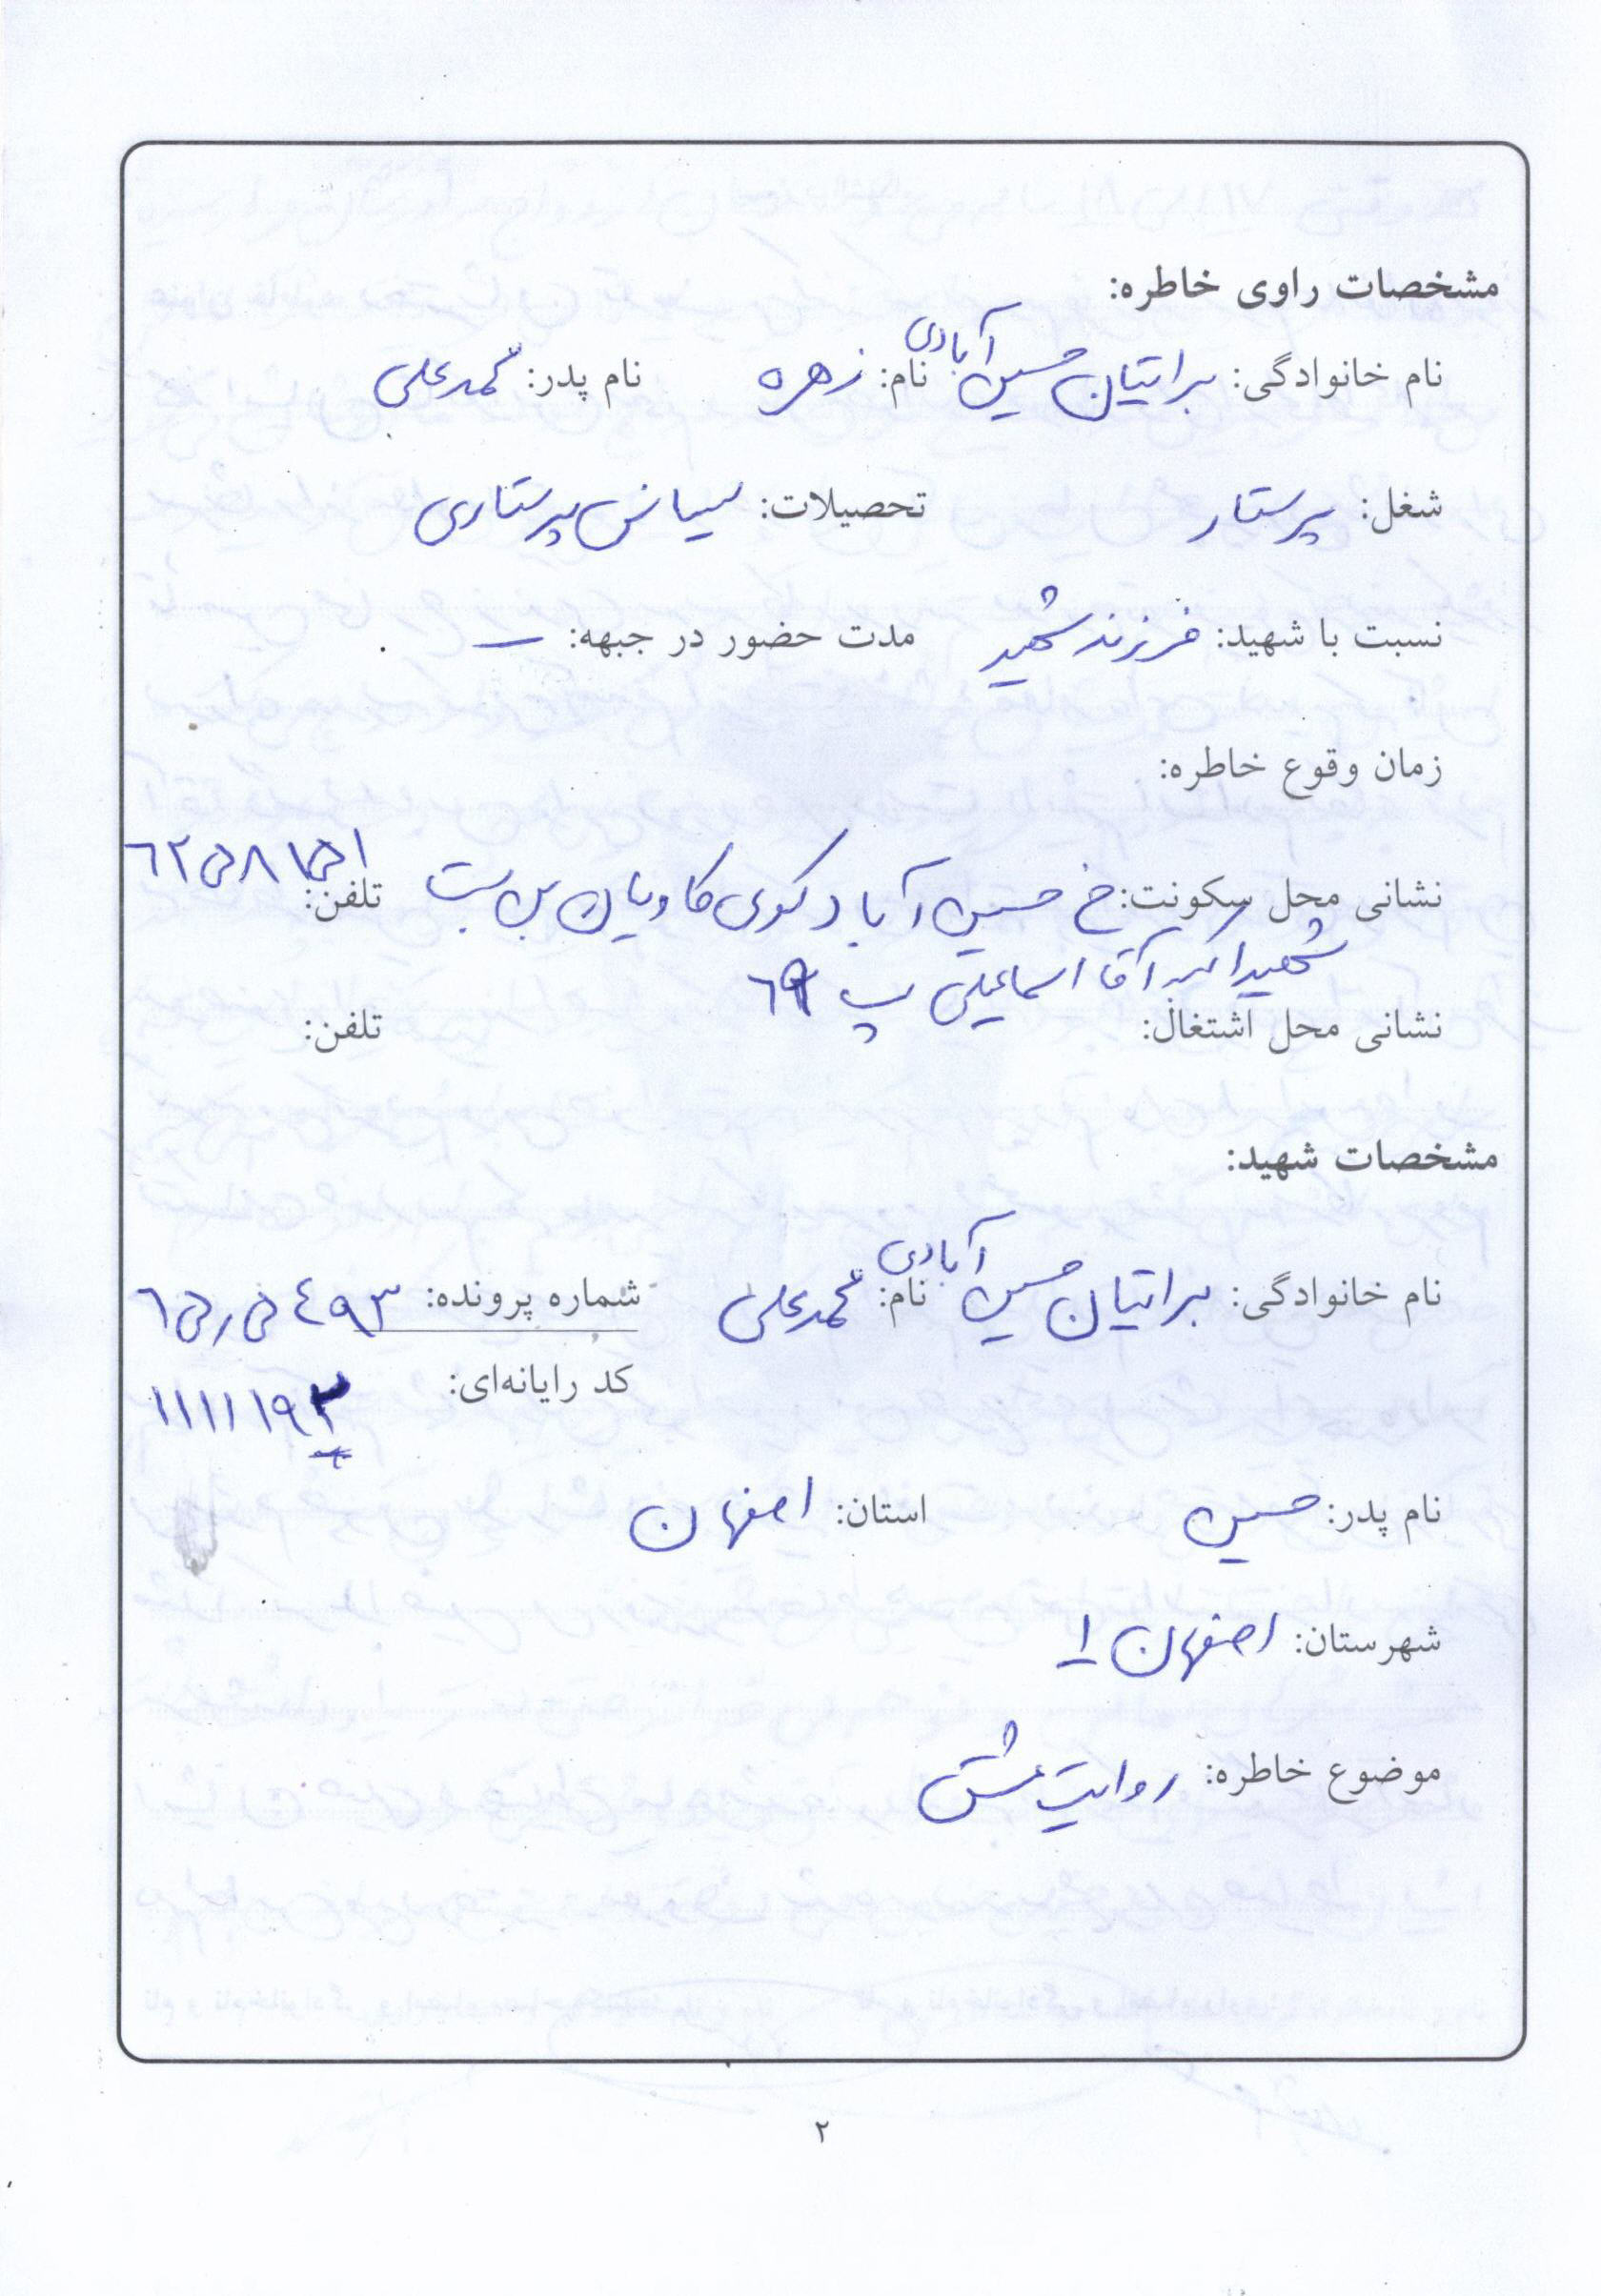 مشخصات راوی خاطره:
نام خانوادگی: براتیان حسین آبادی نام: زهره نام پدر: محمدعلی
شغل: پرستار تحصیلات: لیسانس پرستاری
نسبت با شهید: فرزند شهید مدت حضور در جبهه: —
زمان وقوع خاطره:
نشانی محل سکونت: خ حسین آباد کوی کاویان بن بست تلفن:
شهید اکبر آقا اسماعیلی پ ٦٩
نشانی محل اشتغال: تلفن:
مشخصات شهید:
نام خانوادگی: براتیان حسین آبادی نام: محمدعلی شماره پرونده:
کد رایانه‌ای: ۱۱۱۱۱۹۲
نام پدر: حسین استان: اصفهان
شهرستان: اصفهان ۱
موضوع خاطره: روایت عشق
۲